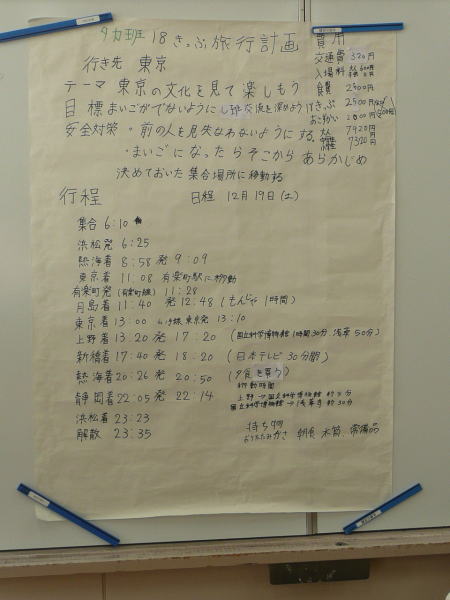 タカ班 18きっぷ旅行計画
費用
交通費 320円
入場料
食費 2500円
18きっぷ 2500円
おこづかい
7920円
7320円
行き先 東京
テーマ 東京の文化を見て楽しもう
目標 まいごがでないようにし班交流を深めよう
安全対策・前の人を見失なわないようにする。
・まいごになったらそこからあらかじめ
決めておいた集合場所に移動する
行程 日程 12月19日(土)
集合 6:10
浜松発 6:25
熱海着 8:58 発 9:09
東京着 11:08 有楽町駅に移動
有楽町発(有楽町線) 11:28
月島着 11:40 発 12:48 (もんじゃ 1時間)
東京着 13:00 東京発 13:10
上野着 13:20 発 17:20 (国立科学博物館 1時間30分、浅草 50分)
新橋着 17:40 発 18:20 (日本テレビ 30分間)
熱海着 20:26 発 20:50 (夕食を買う)
移動時間
静岡着 22:05 発 22:14
上野→国立科学博物館 約5分
国立科学博物館→浅草寺 約30分
浜松着 23:23
解散 23:35
持ち物
おりたたみかさ 朝食 水筒 常備品